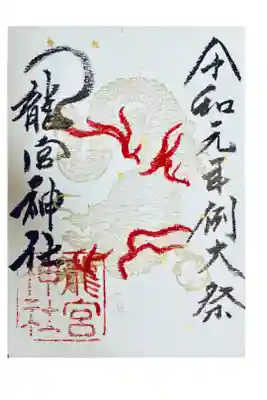 令和元年例大祭
龍宮神社
龍宮
神社